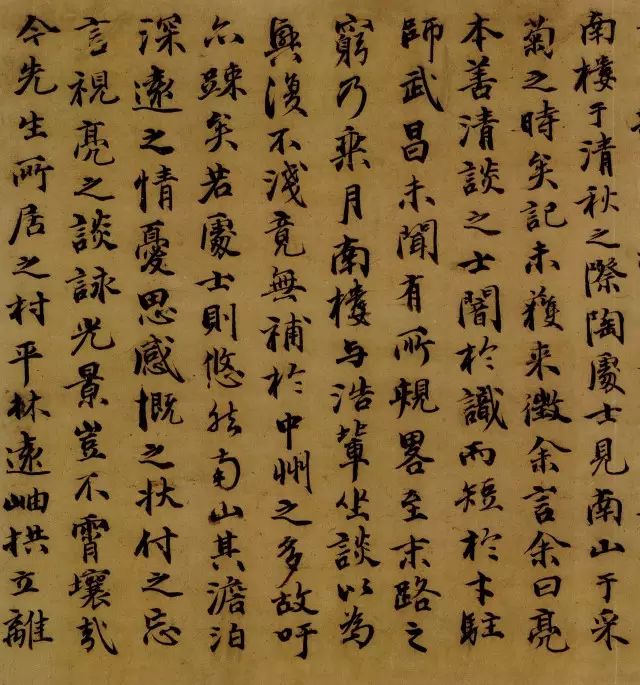 南樓于清秋之際陶處士見南山于采
菊之時矣記未獲来徵余言余曰亮
本善清談之士闇於識而短於才駐
師武昌未聞有所規畧至末路之
窮乃乘月南樓与浩輩坐談以為
興復不淺竟無補於中州之多故吁
亦踈矣若處士則悠然南山其澹泊
深遠之情憂思感慨之状付之忘
言視亮之談詠光景豈不霄壤哉
今先生所居之村平林遠岫拱立離